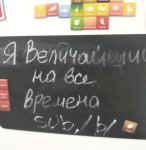 Я Величайший
на все
времена
sub, /b/